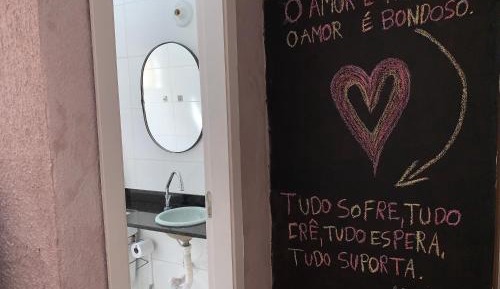 O AMOR É
O AMOR É BONDOSO.
TUDO SOFRE, TUDO
CRÊ, TUDO ESPERA,
TUDO SUPORTA.